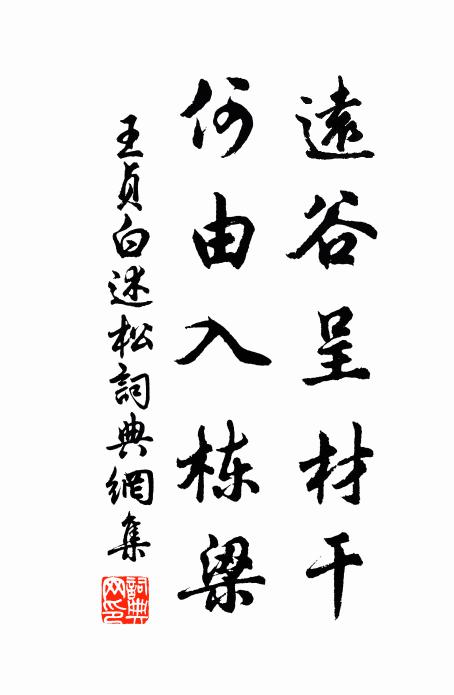 遠谷呈材干
何由入栋梁
王貞白述松詞典網集
詞典網印